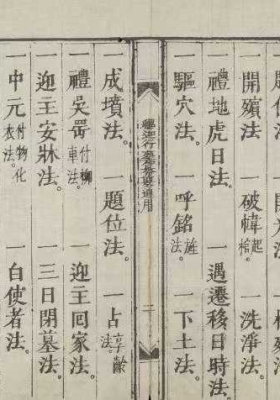 一開殯法。 一破幃起棺。 一洗淨法。
一禮地虎日法。 一遇遷移日時法。
一驅穴法。 一呼銘旌法。 一下土法。
通用 二
一成墳法。 一題位法。 一占享齡法。
一禮吳罡付柳車法。 一迎主囘家法。
一迎主安牀法。 一三日閉墓法。
一中元付物化衣法。 一白使者法。